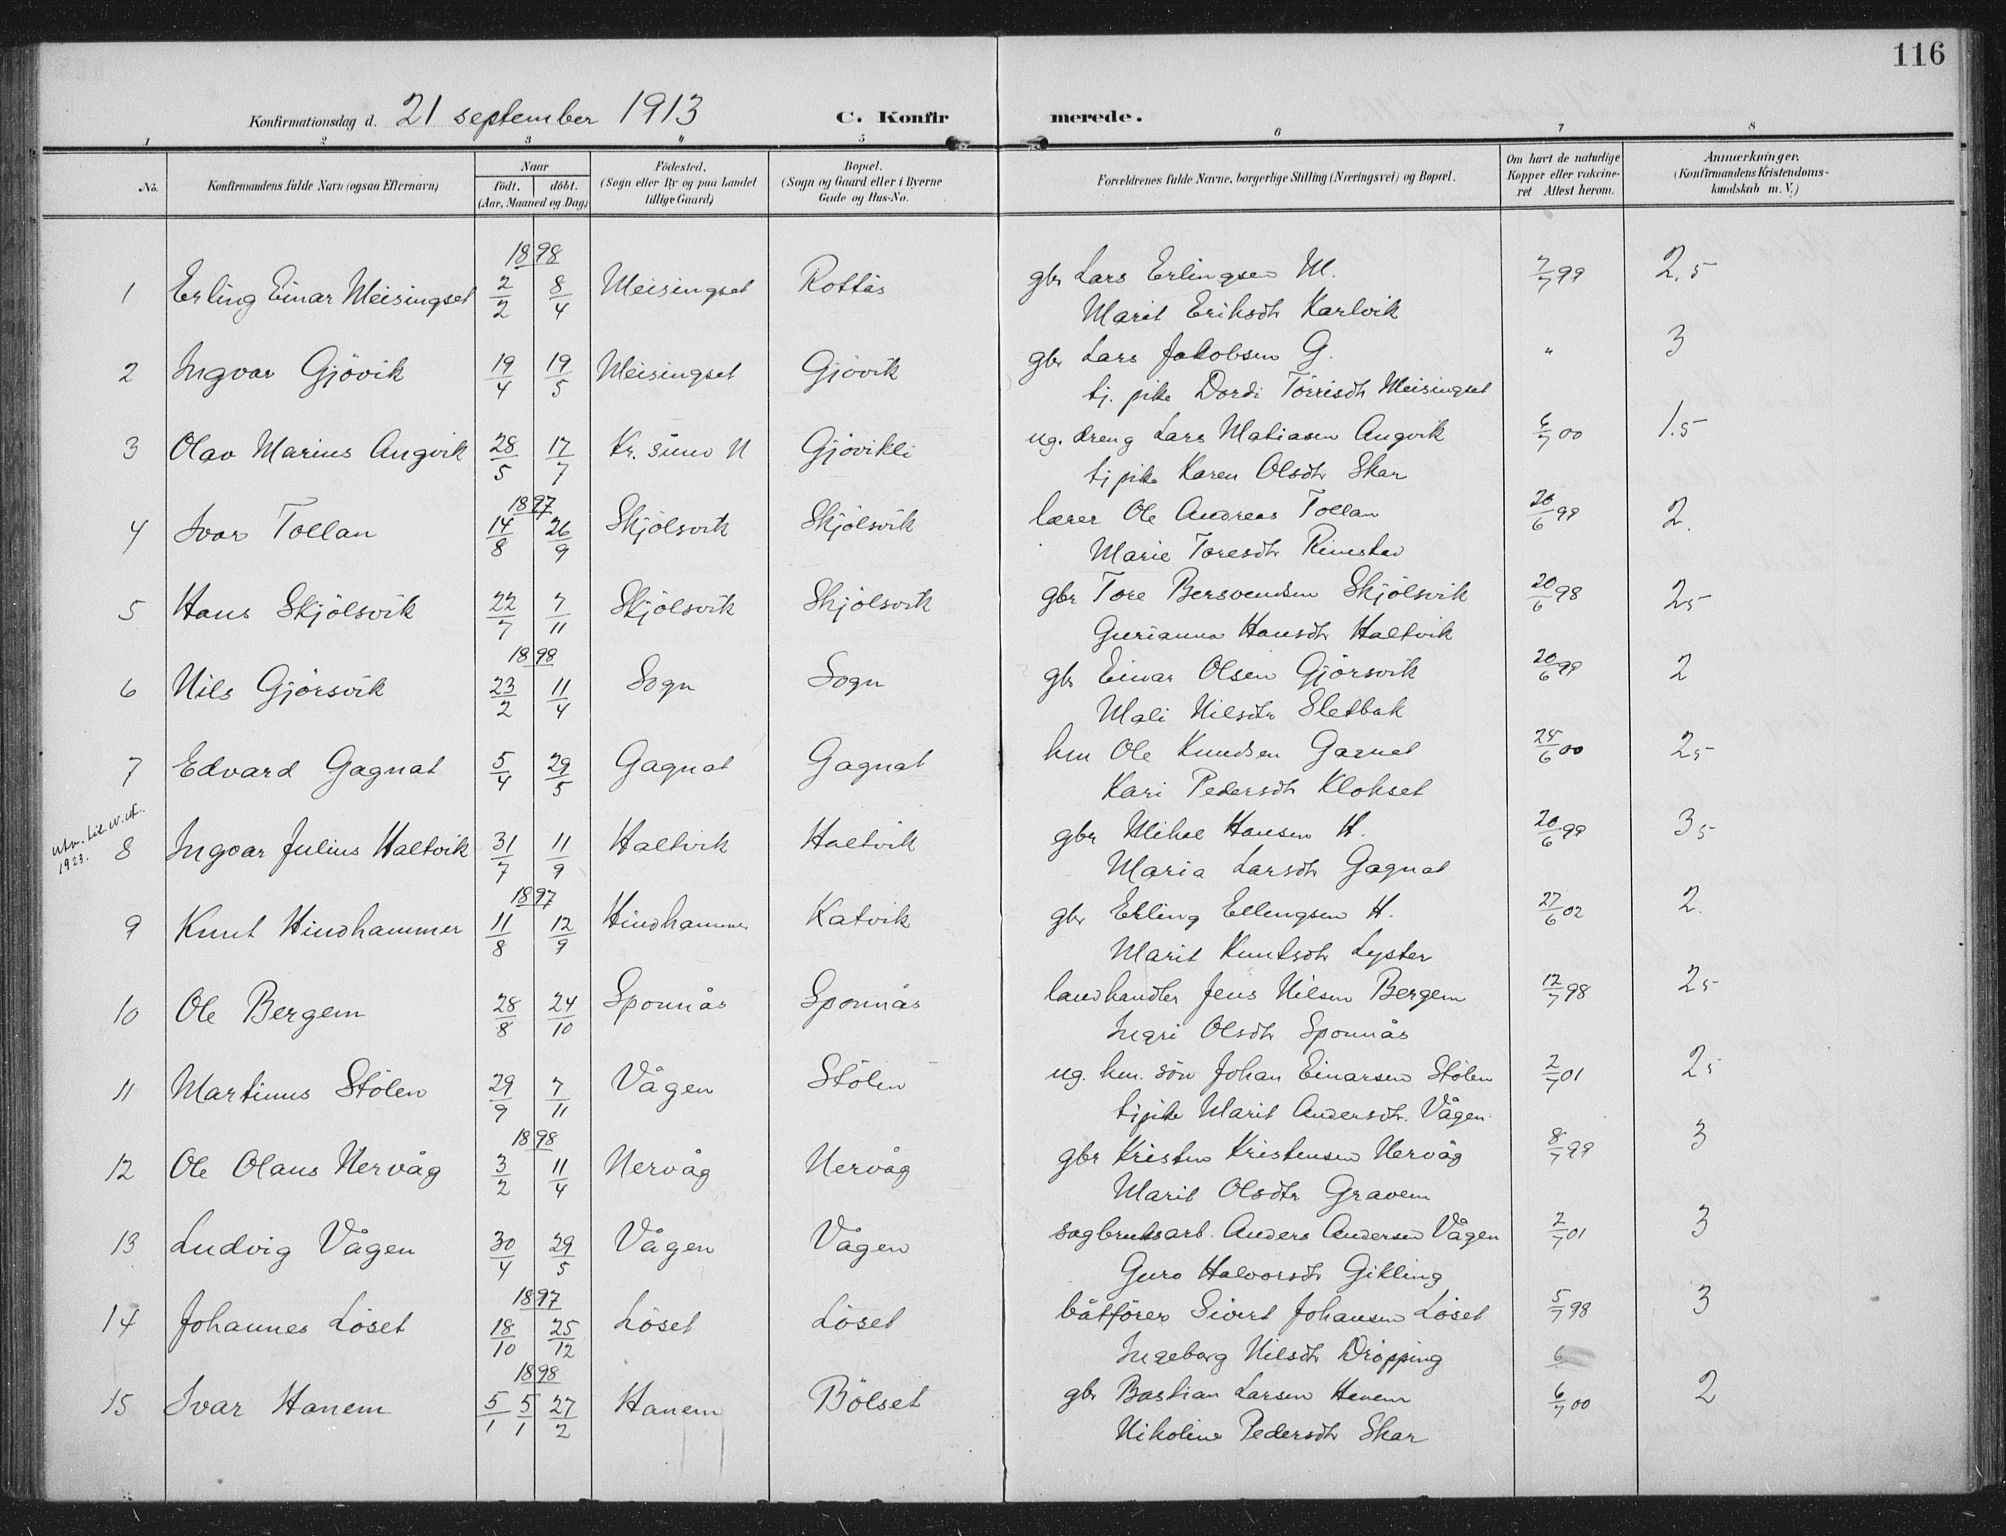 116
Konfirmationsdag d. 21 september 1913 C. Konfirmerede.
1 2 3 4 5 6 7 8
No. Konfirmandens fulde Navn (ogsaa Efternavn) Naar født. døbt. (Aar, Maaned og Dag) Fødested. (Sogn eller By og paa Landet tillige Gaard) Bopæl. (Sogn og Gaard eller i Byerne Gade og Hus-No. Forældrenes fulde Navne, borgerlige Stilling (Næringsvei) og Bopæl. Om havt de naturlige Kopper eller vakcineret Attest herom. Anmærkninger. (Konfirmandens Kristendomskundskab m. V.)
1898
1 Erling Einar Meisingset 2/2 8/4 Meisingset Rottås gbr Lars Erlingsen M. 7/7 99 2.5
Marit Eriksdtr Karlvik
2 Ingvar Gjövik 19/4 19/5 Meisingset Gjövik gbr Lars Jakobsen G. " 3
tj. pike Dordi Törrisdtr Meisingset
3 Olav Marius Angvik 28/5 17/7 Kr. sund N Gjövikli ug. dreng Lars Matiasen Angvik 6/7 00 1.5
tj pike Karen Olsdtr Skar
1897
4 Ivar Tollan 14/8 26/9 Skjölsvik Skjölsvik lærer Ole Andreas Tollan 20/6 99 2.
Marie Toresdtr Rimstad
5 Hans Skjölsvik 22/7 7/11 Skjölsvik Skjölsvik gbr Tore Bersvendsen Skjölsvik 20/6 98 25
Gurianna Hansdtr Haltvik
1898
6 Nils Gjörsvik 23/2 11/4 Sogn Sogn gbr Einar Olsen Gjörsvik 20/6 99 2
Mali Nilsdtr Sletbak
7 Edvard Gagnat 5/4 29/5 Gagnat Gagnat hm Ole Knudsen Gagnat 25/6 00 25
Kari Pedersdtr Klokset
1923.
8 Ingvar Julius Haltvik 31/7 11/9 Haltvik Haltvik gbr Mikal Hansen H. 20/6 99 35
Maria Larsdtr Gagnat
1897
9 Knut Hindhammer 11/8 12/9 Hindhammer Katvik gbr Erling Ellingsen H. 27/6 02 2.
Marit Knutsdtr Lyster
10 Ole Bergem 28/8 24/10 Sponnås Sponnås landhandler Jens Nilsen Bergem 12/7 98 25
Ingri Olsdtr Sponnås
11 Martinus Stölen 29/9 7/11 Vågen Stölen ug. hm. sön Johan Einarsen Stölen 2/7 01 25
tj pike Marit Andersdtr. Vågen.
1898
12 Ole Olaus Nervåg 3/2 11/4 Nervåg Nervåg gbr Kristen Kristensen Nervåg 8/7 99 3
Marit Olsdtr Gravem
13 Ludvig Vågen 30/4 29/5 Vågen Vågen sagbruksarb. Anders Andersen Vågen 2/7 01 3
Guro Halvorsdtr Gikling
1897
14 Johannes Löset 18/10 25/12 Löset Löset båtförer Sivert Johansen Löset 5/7 98 3
Ingeborg Nilsdtr Dröpping 6
1898
15 Ivar Hanem 5/1 5/1 27/2 Hanem Bölset gbr Bastian Larsen Henem 6/7 00 2
Nikoline Pedersdtr Skar